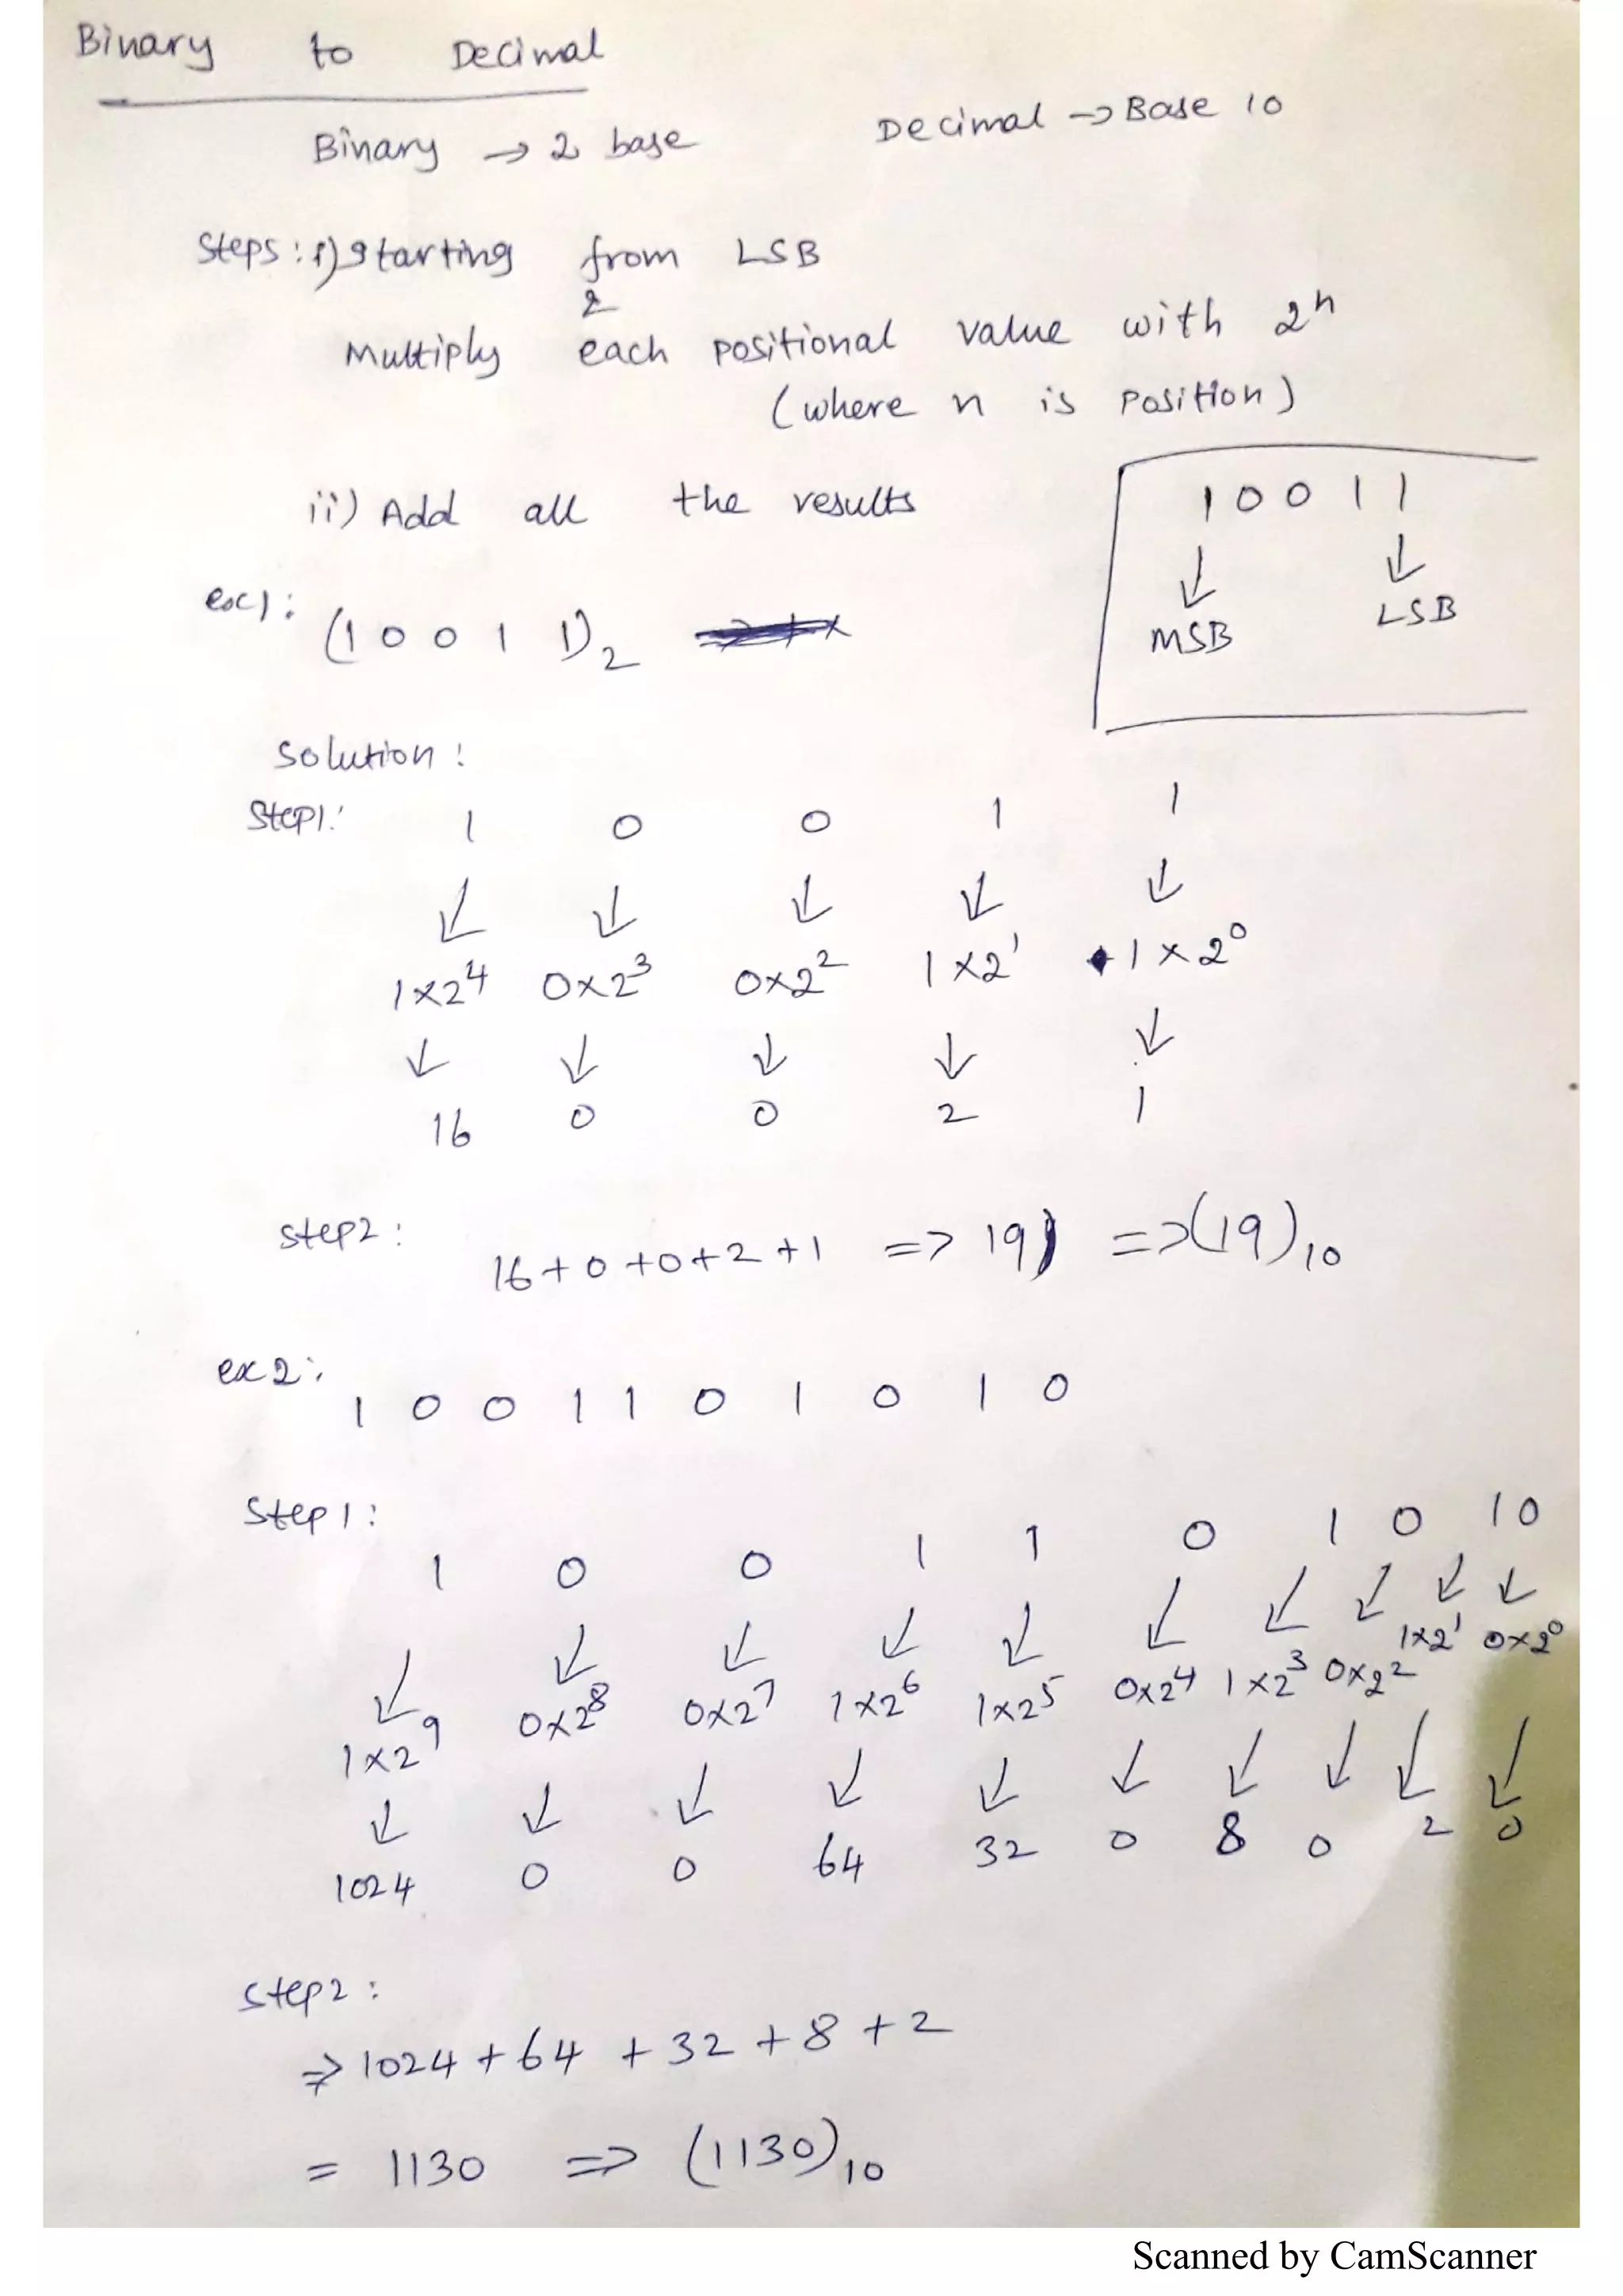 Binary to Decimal
Binary → 2 base Decimal → Base 10
Steps: i) Starting from LSB
2
Multiply each positional value with 2ⁿ
(where n is position)
ii) Add all the results
1 0 0 1 1
↓ ↓
MSB LSB
ex1: (1 0 0 1 1)₂
Solution:
Step1: 1 0 0 1 1
↓ ↓ ↓ ↓ ↓
1×2⁴ 0×2³ 0×2² 1×2¹ 1×2⁰
↓ ↓ ↓ ↓ ↓
16 0 0 2 1
step2: 16+0+0+2+1 => 19 => (19)₁₀
ex2: 1 0 0 1 1 0 1 0 1 0
Step1:
1 0 0 1 1 0 1 0 1 0
↓ ↓ ↓ ↓ ↓ ↓ ↓ ↓ ↓ ↓
1×2⁹ 0×2⁸ 0×2⁷ 1×2⁶ 1×2⁵ 0×2⁴ 1×2³ 0×2² 1×2¹ 0×2⁰
↓ ↓ ↓ ↓ ↓ ↓ ↓ ↓ ↓ ↓
1024 0 0 64 32 0 8 0 2 0
step2:
=> 1024 + 64 + 32 + 8 + 2
= 1130 => (1130)₁₀
Scanned by CamScanner